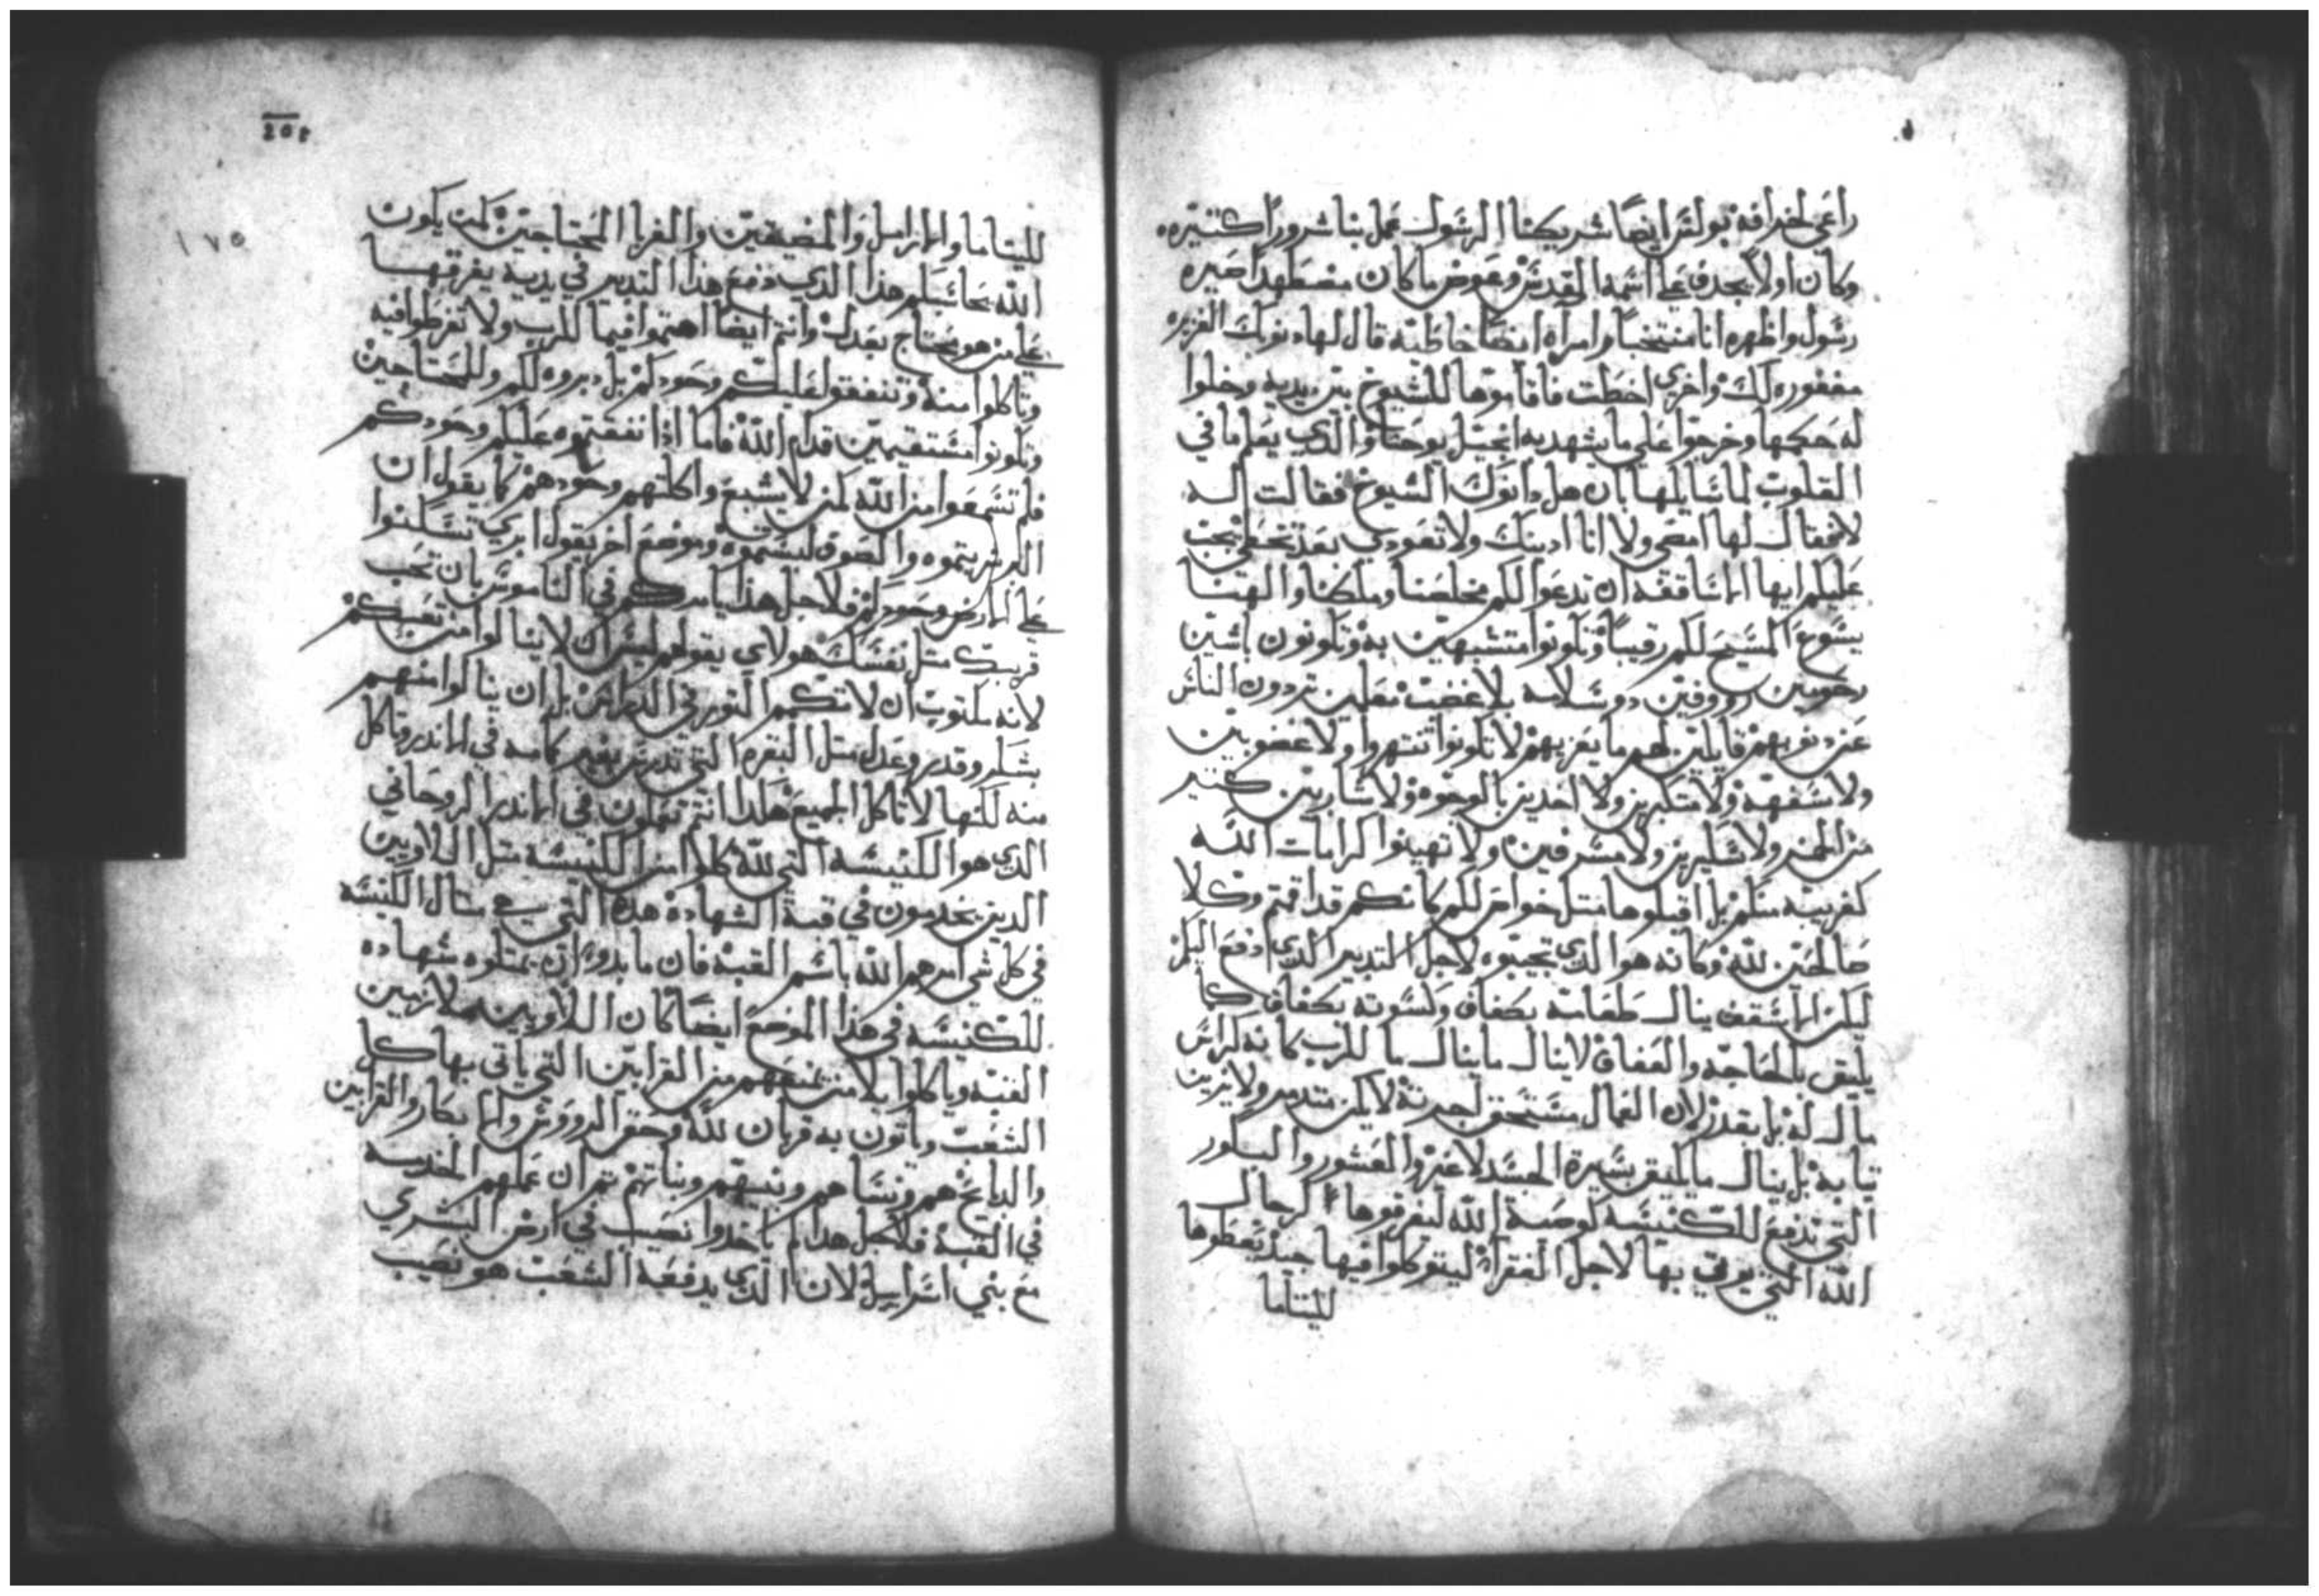 راعي لخرافه بولس ايضا شريكنا الرسول عمل بنا شرورا كتيره
وكان اولا يجدف على اسمه القدس وعوض ما كان مضطهدا صيره
رسول واظهره انا منتخبا وامراة ايضا خاطية قال لها دنوبك الغزيره
مغفوره لك واخرى اخطت فاقاموها الشيوخ بين يديه وخلوا
له حكمها وخرجوا على ما يشهد به انجيل يوحنا والدي يعلم ما في
القلوب لما سايلها بان هل دانوك الشيوخ فقالت له
لا فقال لها امضي ولا انا ادينك ولا تعودي بعد تخطي يجب
عليكم ايها الاساقفه ان تدعوا لكم مخلصنا وملكنا والهنا
يسوع المسيح لكم رقيبا وتكونوا متشبهين به وتكونون باشين
رحومين رووفين دو سلامه بلا غضب معلمين تردون الناس
عن دنوبهم قابلين لهم ما يعزيهم لا تكونوا تنتهروا ولا غضوبين
ولا سفهه ولا متكبرين ولا اخدين بالوجوه ولا شاربين كتير
من الخمر ولا سكيرين ولا مسرفين ولا تهينوا كرامات الله
كغريبه منكم بل اقبلوها متل خواص لكم كانكم قد اقمتم وكلا
صالحين لله وكانه هو الدي تجيبوه لاجل التدبير الدي ادفع اليكم
ليكن الاسقف ينال طعامه بكفاف وكسوته بكفاف كما
يليق بالحاجه والعفاف لا ينال ما ينال ما للرب كانه كراس
مال له بل بقدر لان العمال مستحق اجرته لا يكن متدمر ولا يزين
تيابه بل ينال ما يليق بسيرة الجسد لا غير والعشور والبكور
التي تدفع للكنيسه كوصية الله ليفرقوها الرجال
الله التي يوتي بها لاجل الفقرا ليتوكلوا فيها جيد يعطوها
لليتاما
201
١٧٥
لليتاما والارامل والمضيقين والغربا المحتاجين كمن يكون
الله يحاسبكم هدا الدي دفع هدا التدبير في يديه يفرقها
على من هو يحتاج بعدل وانتم ايضا اهتموا فيما للرب ولا تفرطوا فيه
وتاكلوا منه وتنفقوا عليكم وحودكم بل دبروه لكم وللمحتاجين
وتكونوا مستقيمين قدام الله فاما ادا نفقتموه عليكم وحودكم
فلم تسمعوا من الله كمن لا يشبع واكلتهم وحودهم كما يقول ان
اللبن شربتموه والصوف لبستموه وموضع اخر يقول تسكنوا
على الارض وحودكم فلاجل هدا يامركم في الناموس بان تحب
قريبك متل نفسك هولاي يقولهم ليس ان لا ينالوا من تعبكم
لانه مكتوب ان لا تكم التور في الدراس بل ان ينالوا منهم
بشكر وقدر وعدل متل البقره التي تدرس بغير كمامه في الاندر وتاكل
منه لكنها لا تاكل الجميع هكدا انتم تعملون في الاندر الروحاني
الدي هو الكنيسه التي لله كلوا من الكنيسه متل اللاويين
الدين يخدمون في قبة الشهادة هده التي هي متال الكنيسه
في كل شي امرهم الله باسم القبه فان ما يدوا ان يمتلوه شهاده
للكنيسه في هدا الموضع ايضا كان اللاويين ملازمين
القبه وياكلوا بلا من يمنعهم من القرابين التي ياتي بها كل
الشعب وياتون به قربان لله وحق الرووس والابكار والقرابين
والدبايح هم ونساهم وبنيهم وبناتهم تم ان عملهم الخدمه
في القبه فلاجل هدا لم ياخدوا نصيب في ارض البشري
مع بني اسراييل لان الدي يدفعه الشعب هو نصيب